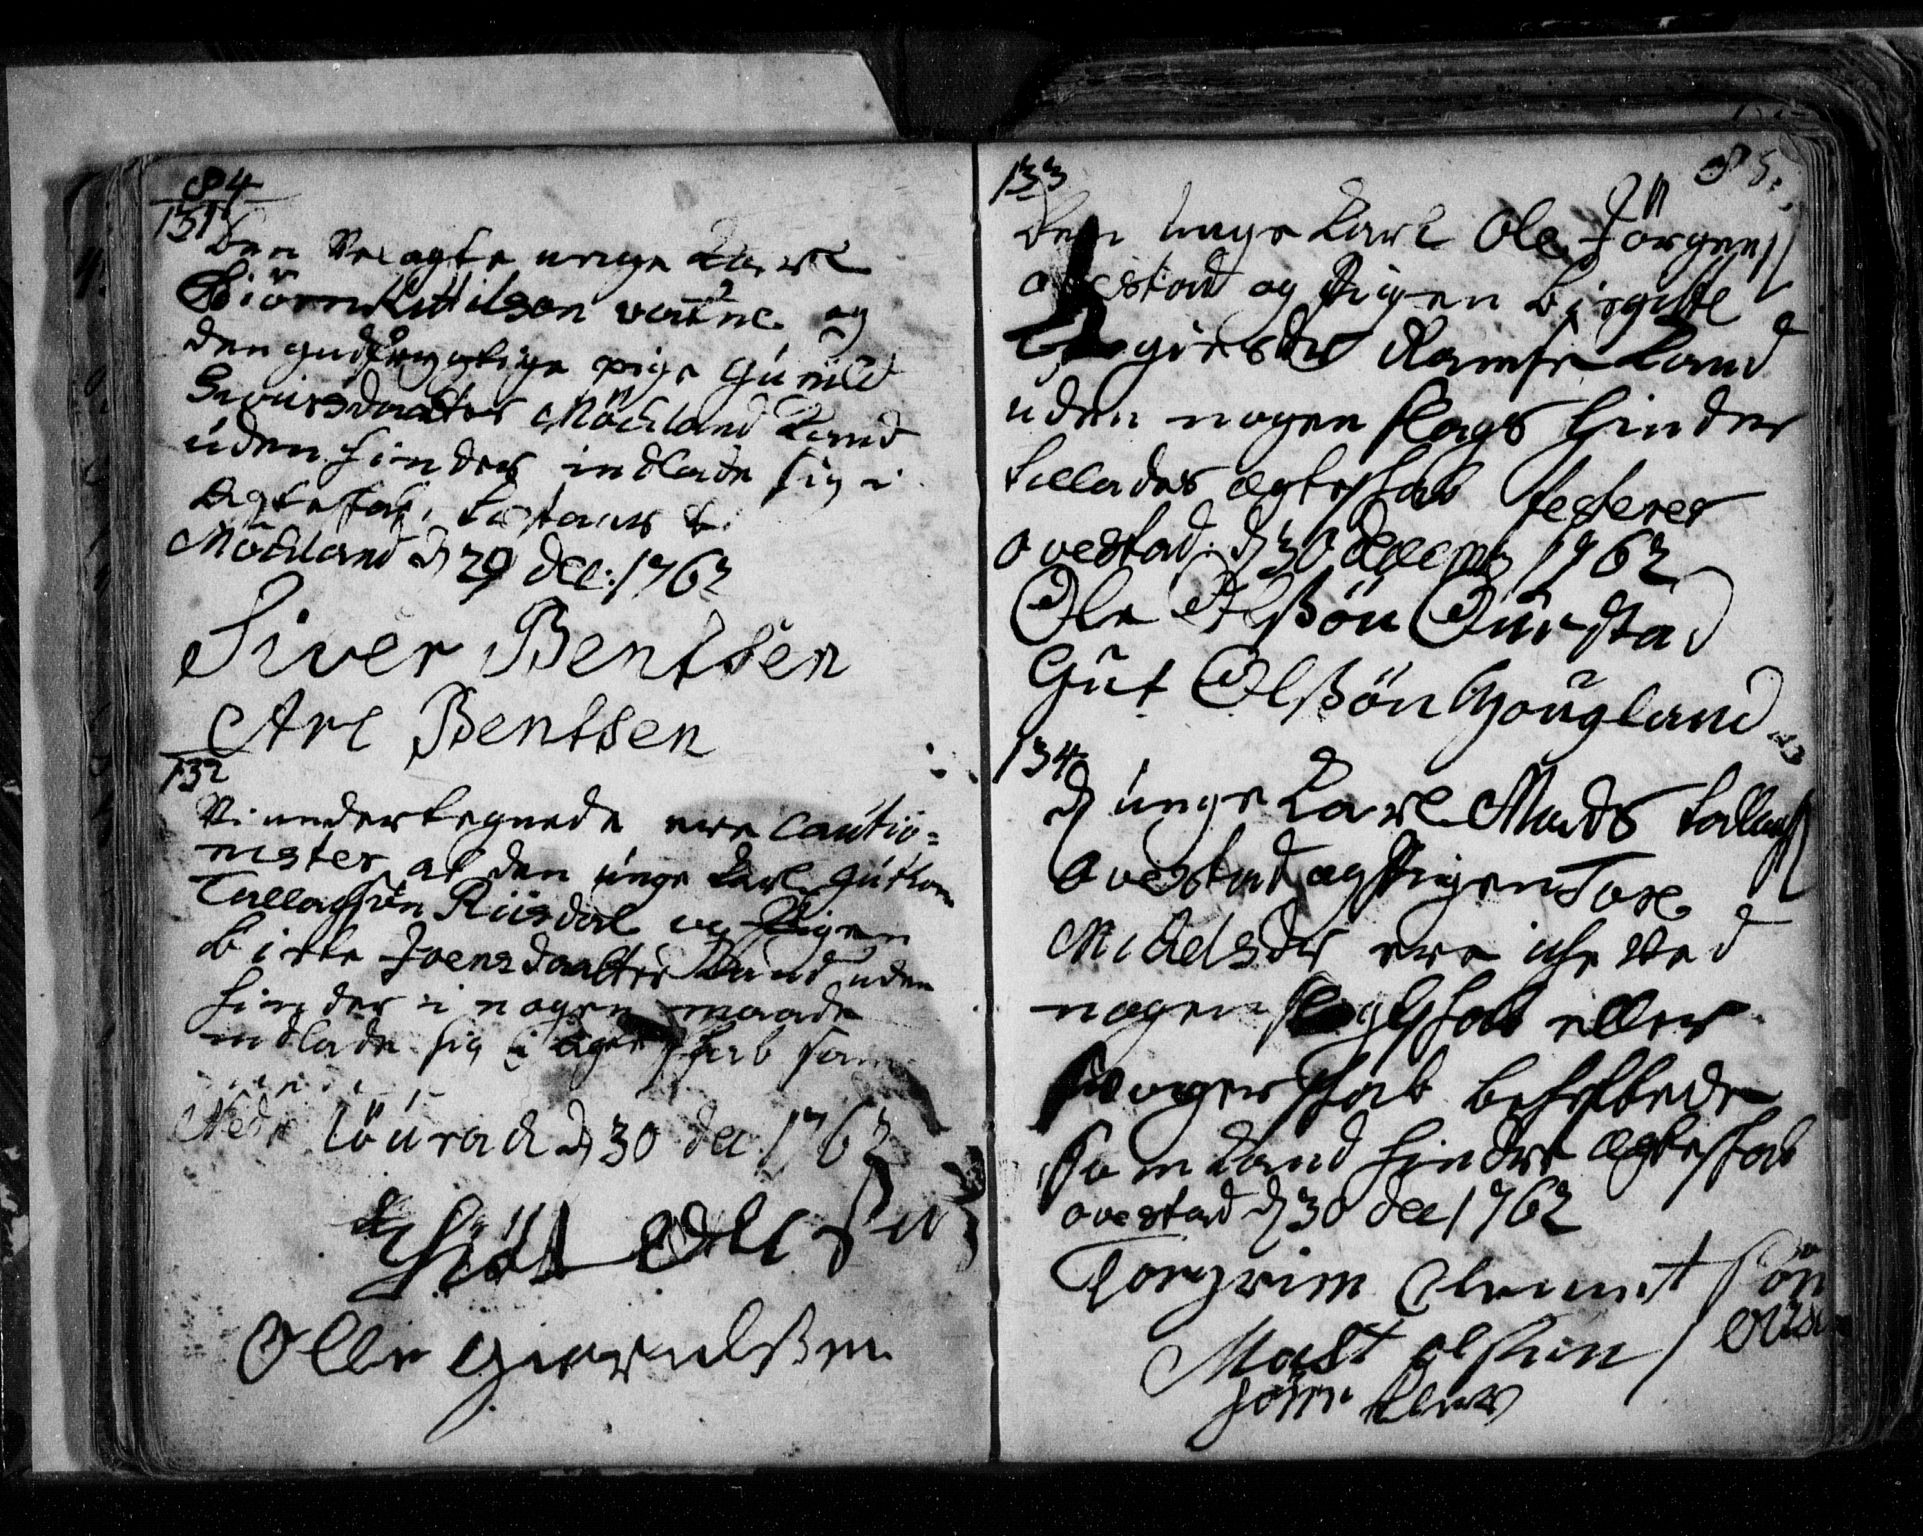 84
131
Den Velagte unge Karl
Biörn Kittilson vatne og
den gudfrygtige pige Gunild
Siversdaatter Möckland Kand
uden hinder indlade sig i
Ægteskab, testerer vi
Möckland d 29 dec: 1762
Siver Bentsen
Are Bentsen
132
Vi underteegnede ere Cautio=
nister at den unge Karl Guttorm
Tallachsen Riisdal og Pigen
Birte Joensdaatter Kand uden
hinder i nogen maade
indlade sig i ægteskab
d 30 dec 1762
Olle
133
85.
Den unge Karl Ole Jörgens
ovestad og Pigen Birgitte
Kand
uden nogen slags hinder
tillades ægteskab testerer
ovestad d 30 decemb 1762
Ole Olßön Ouestad
Gut Olßön Hougland
134
d unge Karl Mads Tallags
ovestad og Pigen Tore
Michelsdr ere iche ved
nogen slegtskab eller
svogerskab behefftede
som Kand hindre ægteskab
ovestad d 30 dec 1762
Torgrim Clemmet sön
Mast olsen